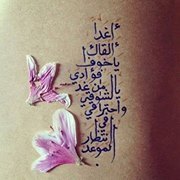 أغداً
ألقاك
ياخوف
فؤادي
من غدِ
يالشوقي
وإحتراقي
في
إنتظار
الموعد